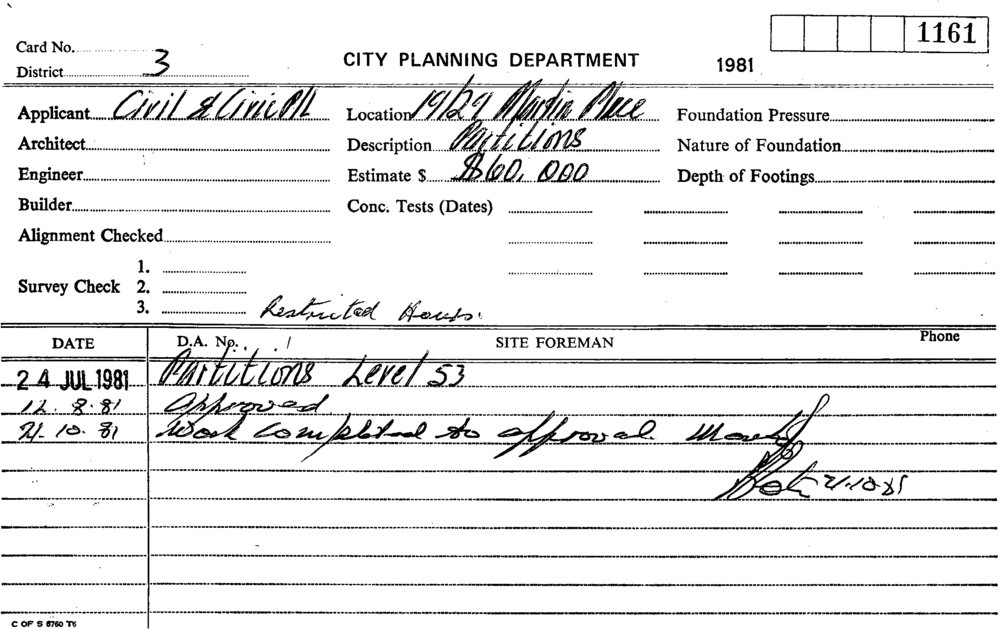 1161
Card No.
CITY PLANNING DEPARTMENT 1981
District 3
Applicant Civil & Civic P/L Location 19/29 Martin Place Foundation Pressure
Architect Description Partitions Nature of Foundation
Engineer Estimate $ $60,000 Depth of Footings
Builder Conc. Tests (Dates)
Alignment Checked
1.
Survey Check 2.
3. Restricted Hours.
DATE D.A. No. SITE FOREMAN Phone
24 JUL 1981 Partitions Level 53
12.8.81 Approved
21.10.81 Work completed to approval.
21.10.81
C OF S 6760 T6